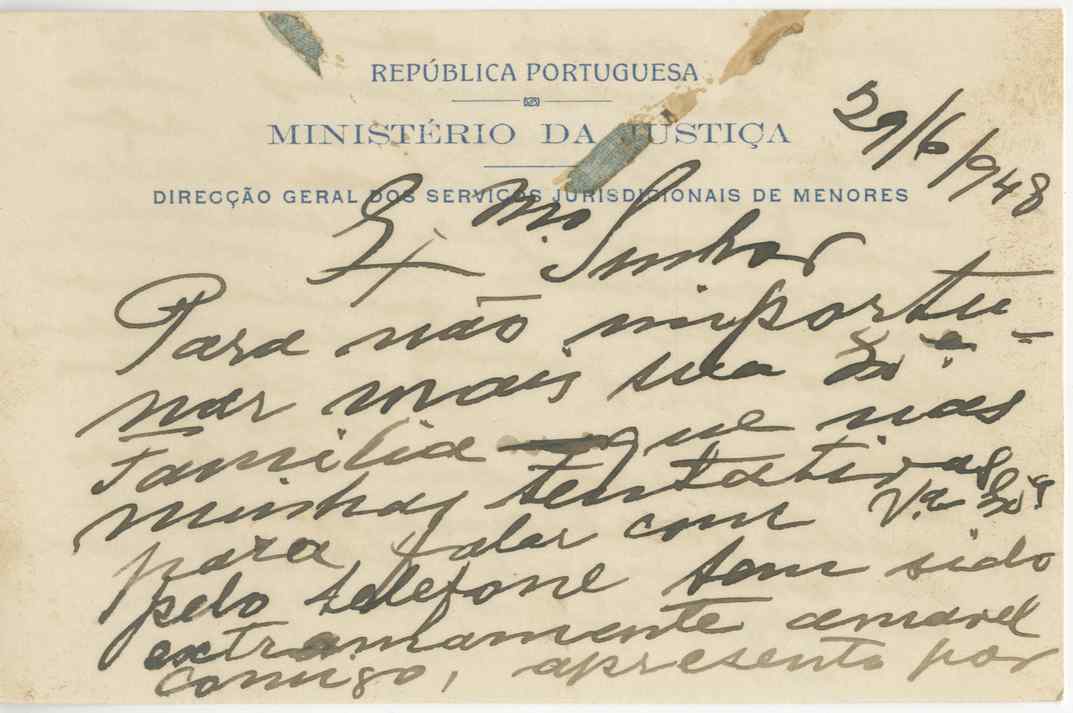 REPÚBLICA PORTUGUESA
MINISTÉRIO DA JUSTIÇA
DIRECÇÃO GERAL DOS SERVIÇOS JURISDICIONAIS DE MENORES
29/6/948
Ex.mo Senhor
Para não importu-
nar mais sua Ex.ma
Familia que nas
minhas tentativas
para falar com V.a Ex.a
pelo telefone tem sido
extremamente amavel
comigo, apresento por